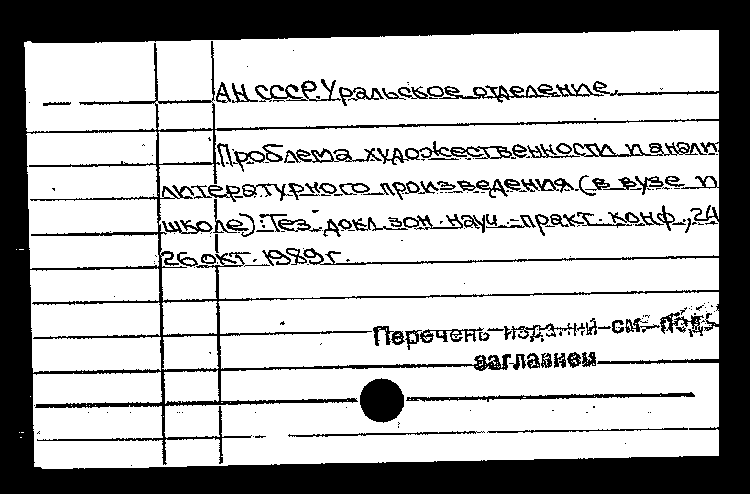 АН СССР. Уральское отделение.
Проблема художественности и анали
литературного произведения (в вузе и
школе): Тез. докл. зон. науч.-практ. конф., 24
26 окт. 1989 г.
Перечень изданий см. под
заглавием